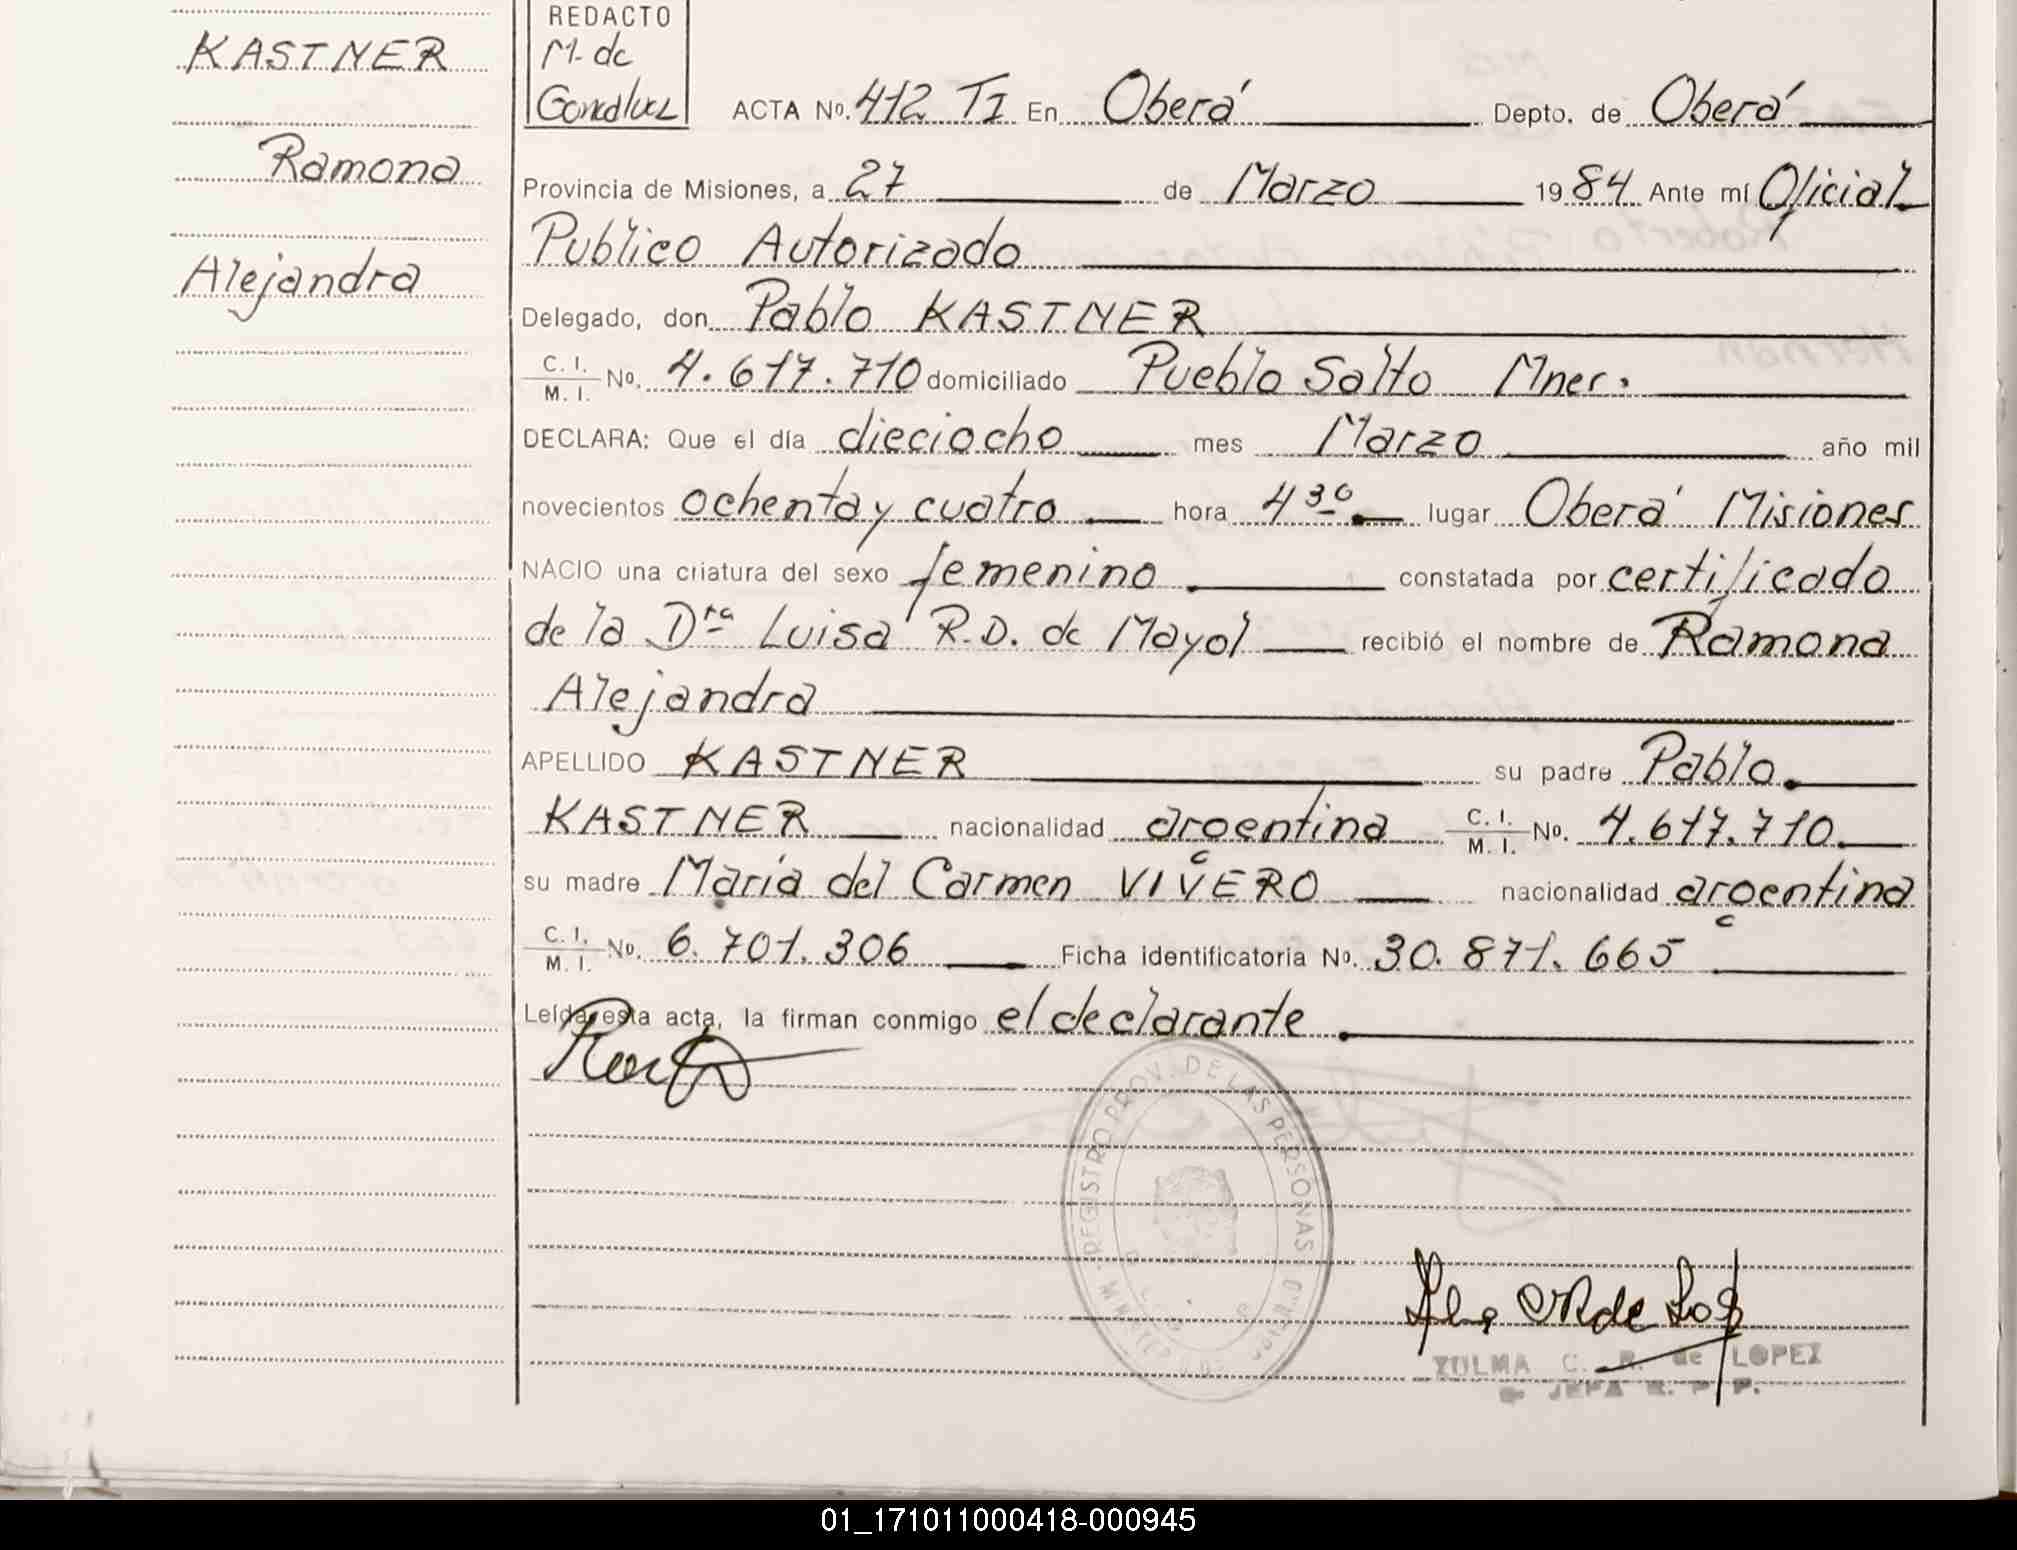 KASTNER
Ramona
Alejandra
REDACTO
M. de
ACTA Nº. 412 TI En Oberá Depto. de Oberá
Provincia de Misiones, a 27 de Marzo 1984 Ante mí Oficial
Publico Autorizado
Delegado, don Pablo KASTNER
C. I. / M. I. Nº. 4.617.710 domiciliado Pueblo Salto Mner.
DECLARA: Que el día dieciocho mes Marzo año mil
novecientos ochenta y cuatro hora 4 30 lugar Oberá Misiones
NACIO una criatura del sexo femenino constatada por certificado
de la Dra Luisa R.D. de Mayol recibió el nombre de Ramona
Alejandra
APELLIDO KASTNER su padre Pablo
KASTNER nacionalidad argentina C. I. / M. I. Nº. 4.617.710
su madre María del Carmen VIVERO nacionalidad argentina
C. I. / M. I. Nº. 6.701.306 Ficha identificatoria Nº. 30.871.665
Leída esta acta, la firman conmigo el declarante
REGISTRO PROV. DE LAS PERSONAS
ZULMA C. R. de LOPEZ
JEFA R. P. P.
01_171011000418-000945